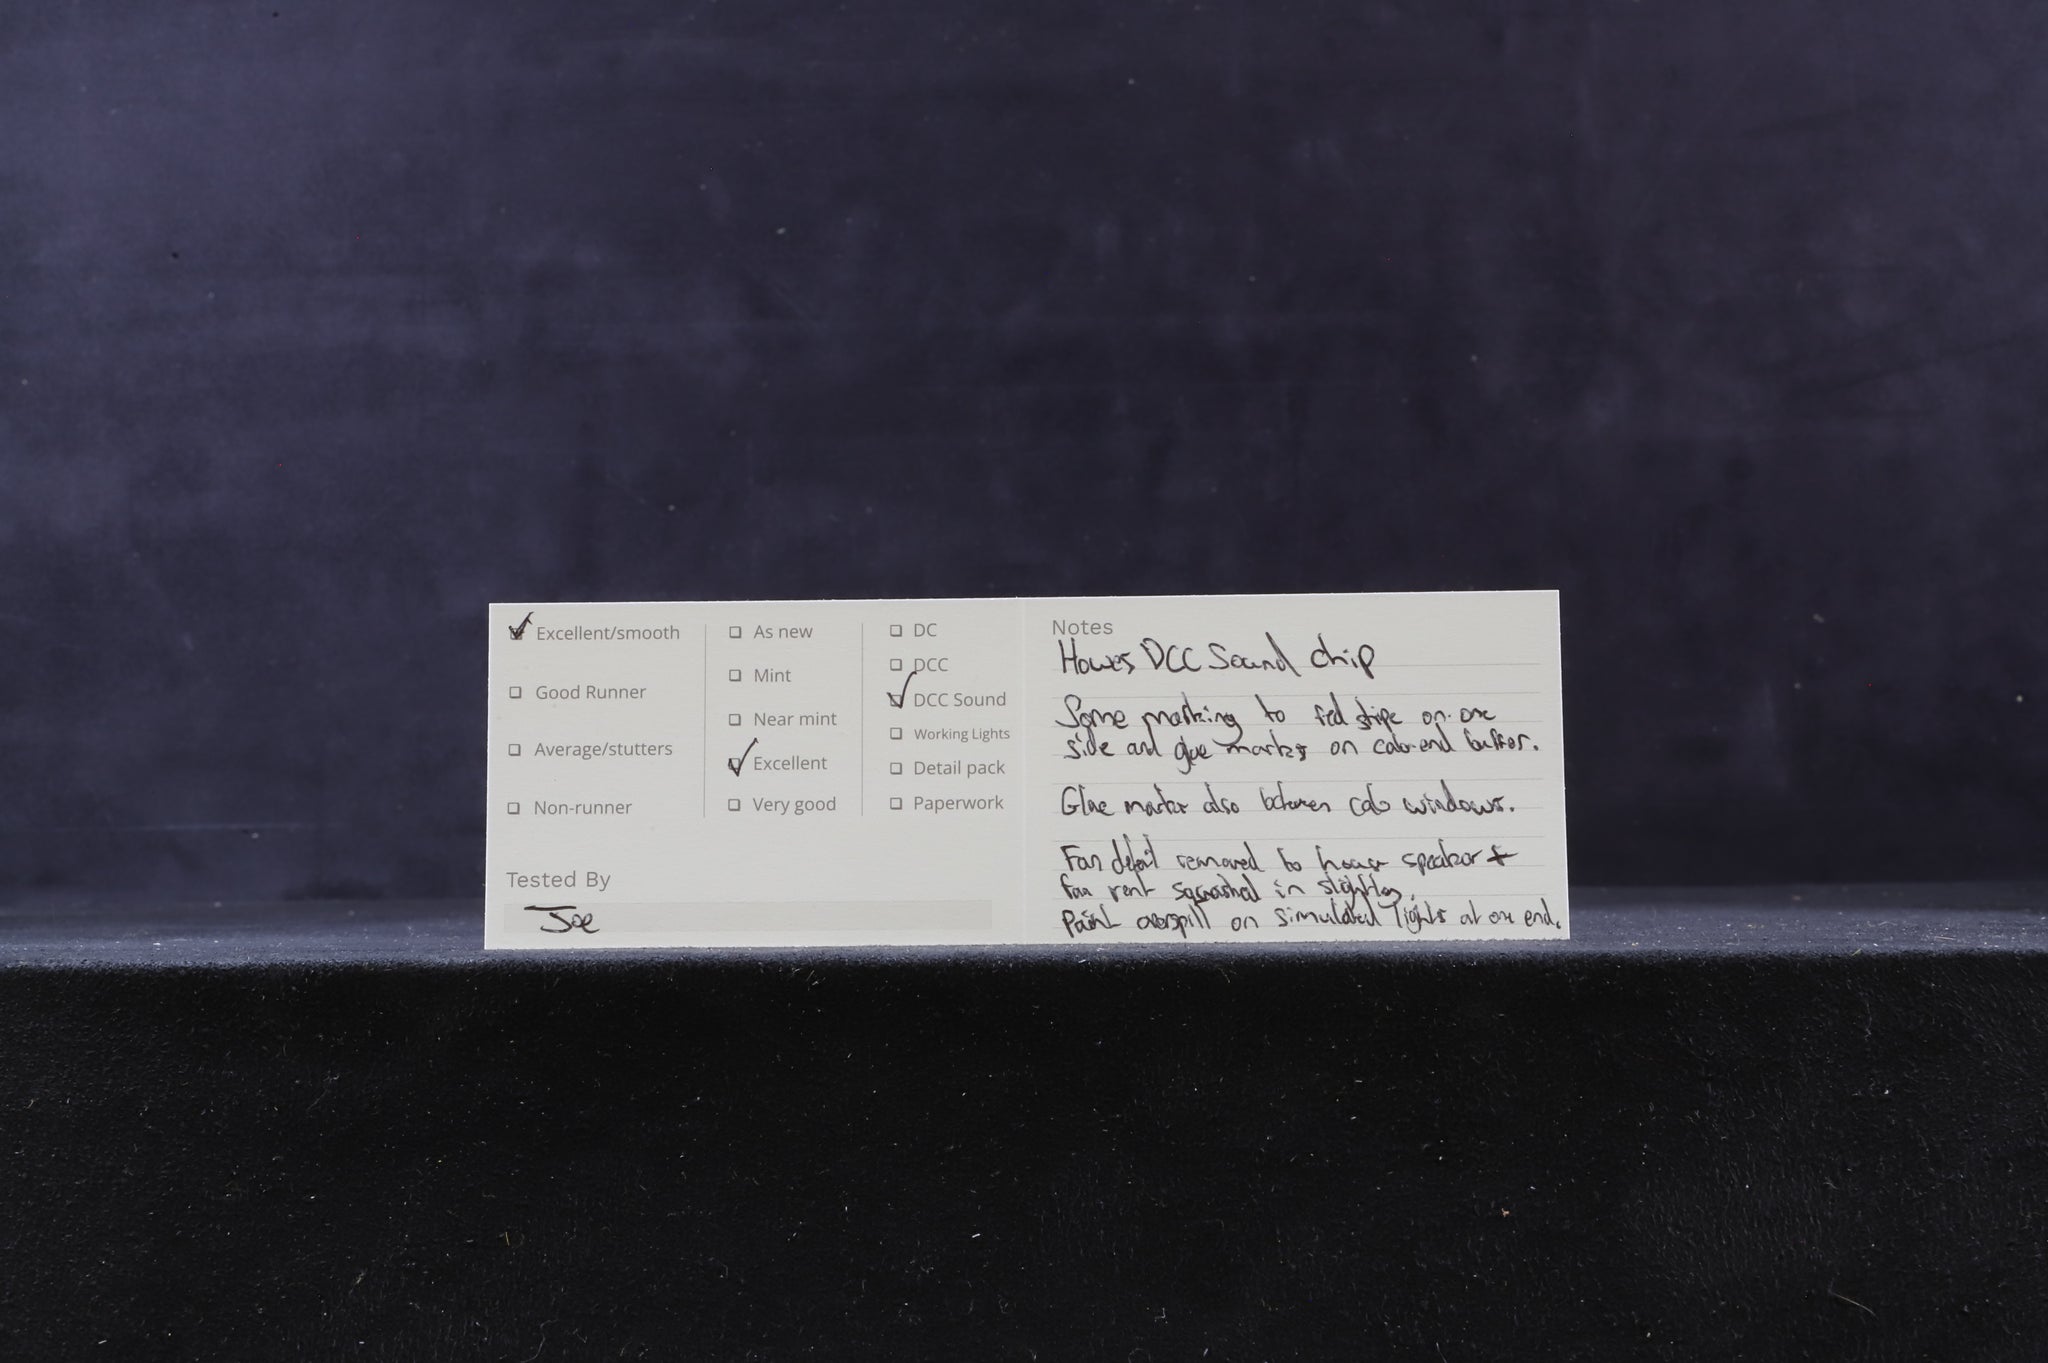 Excellent/smooth
Good Runner
Average/stutters
Non-runner
As new
Mint
Near mint
Excellent
Very good
DC
DCC
DCC Sound
Working Lights
Detail pack
Paperwork
Tested By
Joe
Notes
Howes DCC Sound chip
Some marking to red stripe on one
side and glue marks on cab-end buffer.
Glue marks also between cab windows.
Fan detail removed to house speaker +
fan vent squashed in slightly.
Paint overspill on simulated lights at one end.